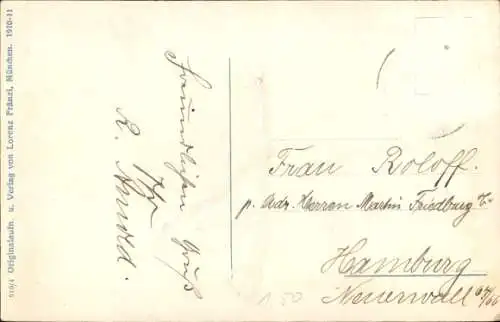 510/4 Originalaufn. u. Verlag von Lorenz Fränzl, München. 1910-11
Freundlichen Gruß
Ihr
R. Arnold.
Frau Roloff.
p. Adr. Herren Martin Friedburg & C.
Hamburg
Neuerwall 64/66
1.50